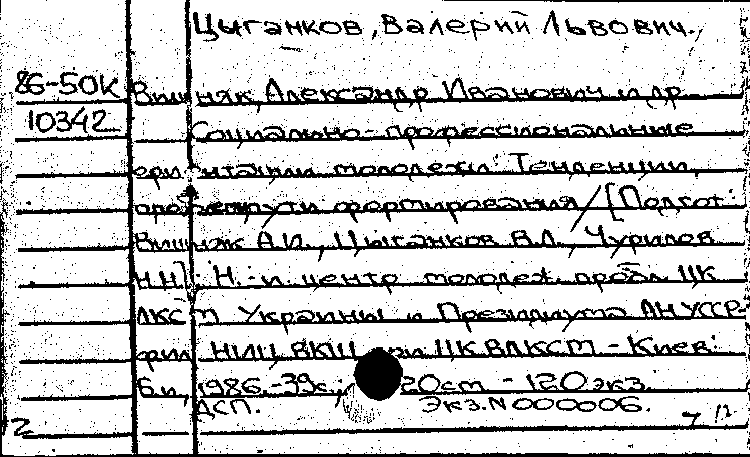 Цыганков, Валерий Львович.
86-50К Вишняк, Александр Иванович и др.
10342 Социально-профессиональные
ориентации молодежи: Тенденции,
пути формирования / [Подгот.:
Вишняк А.И., Цыганков В.Л., Чурилов
Н.Н.]; Н.-и. центр молодеж. пробл. ЦК
ЛКСМ Украины и Президиума АН УССР-
фил. НИЦ ВКШ при ЦК ВЛКСМ. - Киев:
Б.и., 1986. - 39 с.; 20 см. - 120 экз.
ДСП. Экз. N 000006.